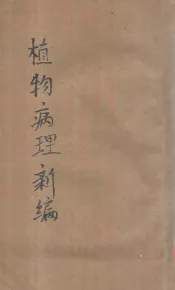 植物病理新编